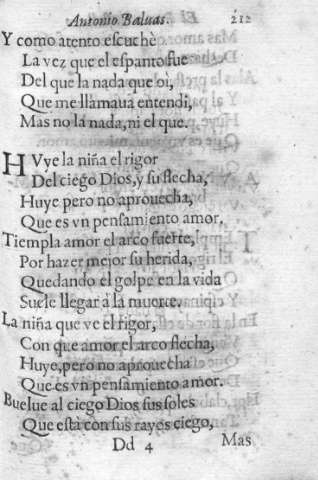 Antonio Baluas. 212
Y como atento escuchè
La vez que el espanto fue
Del que la nada que oì,
Que me llamaua entendi,
Mas no la nada, ni el que.
HVye la niña el rigor
Del ciego Dios, y su flecha,
Huye pero no aprouecha,
Que es vn pensamiento amor.
Tiempla amor el arco fuerte,
Por hazer mejor su herida,
Quedando el golpe en la vida
Suele llegar à la muerte.
La niña que ve el rigor,
Con que amor el arco flecha,
Huye, pero no aprouecha
Que es vn pensamiento amor.
Buelue al ciego Dios sus soles
Que està con sus rayos ciego,
Dd 4 Mas